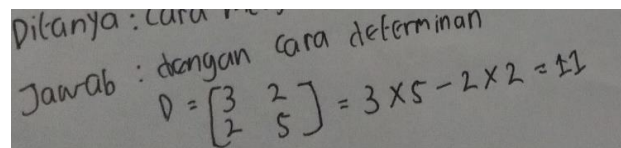 Ditanya : cara
Jawab : dengan cara determinan
D = [3 2
2 5] = 3 × 5 - 2 × 2 = 11